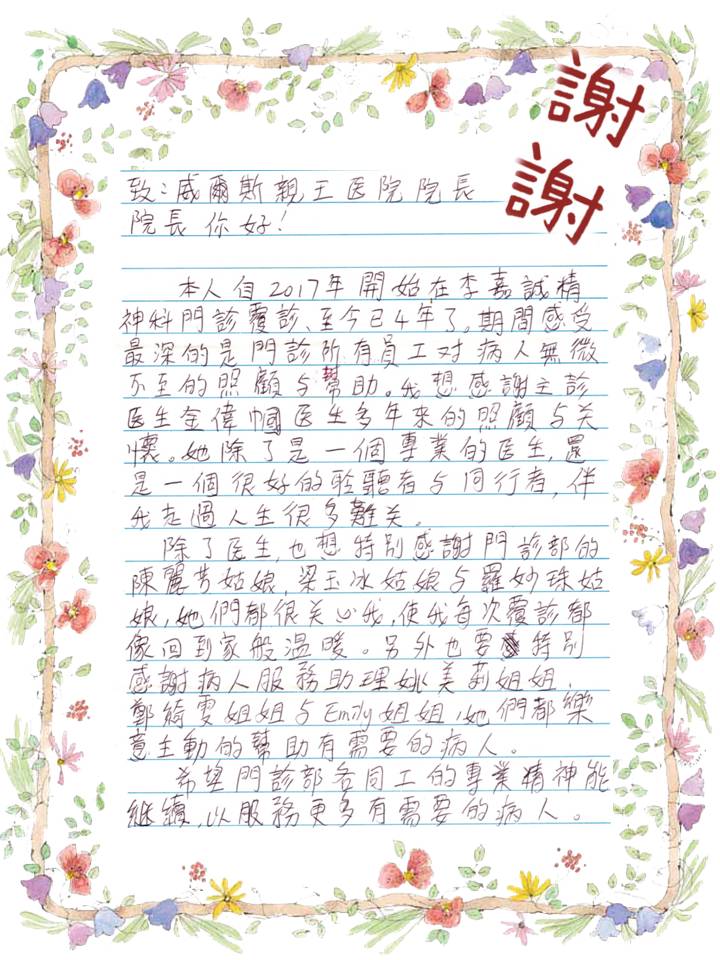 謝
謝
致：威爾斯親王医院院長
院長你好！
本人自2017年開始在李嘉誠精
神科門診覆診、至今已4年了。期間感受
最深的是門診所有員工对病人無微
不至的照顧与幫助。我想感謝主診
医生金偉幗医生多年來的照顧与关
懷。她除了是一個專業的医生，還
是一個很好的聆聽者与同行者，伴
我走過人生很多難关。
除了医生，也想特别感謝門診部的
陳麗芳姑娘，梁玉冰姑娘与羅妙珠姑
娘，她們都很关心我，使我每次覆診都
像回到家般温暖。另外也要特别
感謝病人服務助理姚美莉姐姐、
鄭綺雯姐姐与Emily姐姐，她們都樂
意主動的幫助有需要的病人。
希望門診部各同工的專業精神能
继續，以服務更多有需要的病人。